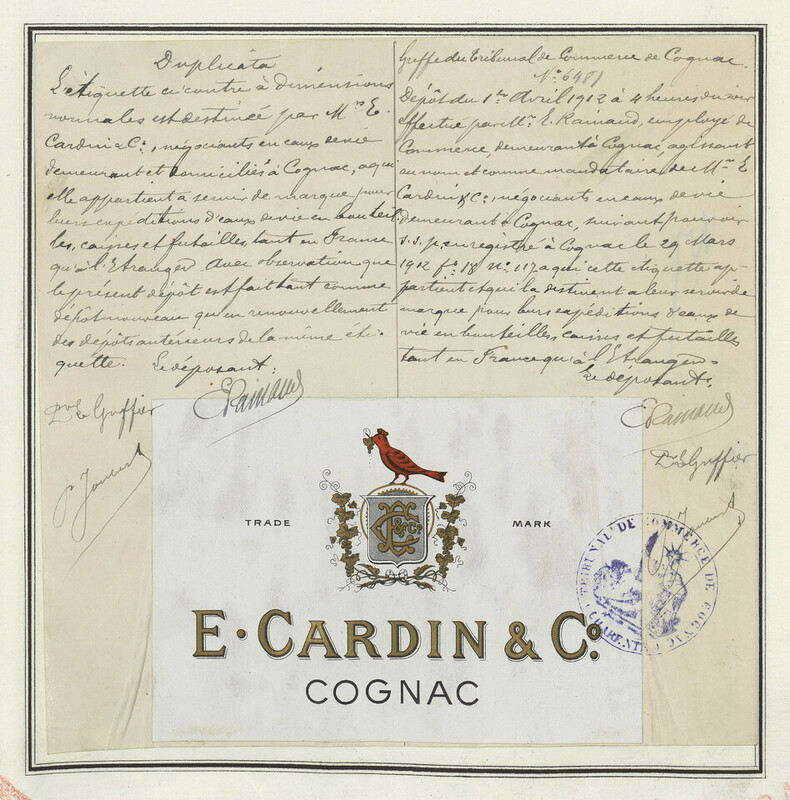 Duplicata
L'étiquette ci contre à dimensions
normales est destinée par Mrs E.
Cardin & Co, négociants en eaux de vie
demeurant et domiciliés à Cognac, à qui
elle appartient à servir de marque pour
leurs expéditions d'eaux de vie en bouteil
les, caisses et futailles, tant en France
qu'à l'Etranger. Avec observation que
le présent dépôt est fait tant comme
dépôt nouveau qu'en renouvellement
des dépôts antérieurs de la même éti-
quette. Le déposant:
E Rainaud
Le Greffier
Greffe du Tribunal de Commerce de Cognac.
No 6481
Dépôt du 1er Avril 1912 à 4 heures du soir
effectué par Mr. E. Rainaud, employé de
Commerce, demeurant à Cognac, agissant
au nom et comme mandataire de Mrs E
Cardin & Co, négociants en eaux de vie
demeurant à Cognac, suivant pouvoir
s.s.p. enregistré à Cognac le 29 Mars
1912 fo 18 No 117 à qui cette étiquette ap-
partient et qui la destinent à leur servir de
marque pour leurs expéditions d'eaux de
vie en bouteilles, caisses et futailles
tant en France qu'à l'Etranger.
Le déposant.
E Rainaud
Le Greffier
TRADE MARK
E&Co
E. CARDIN & Co.
COGNAC
TRIBUNAL DE COMMERCE DE COGNAC
CHARENTE